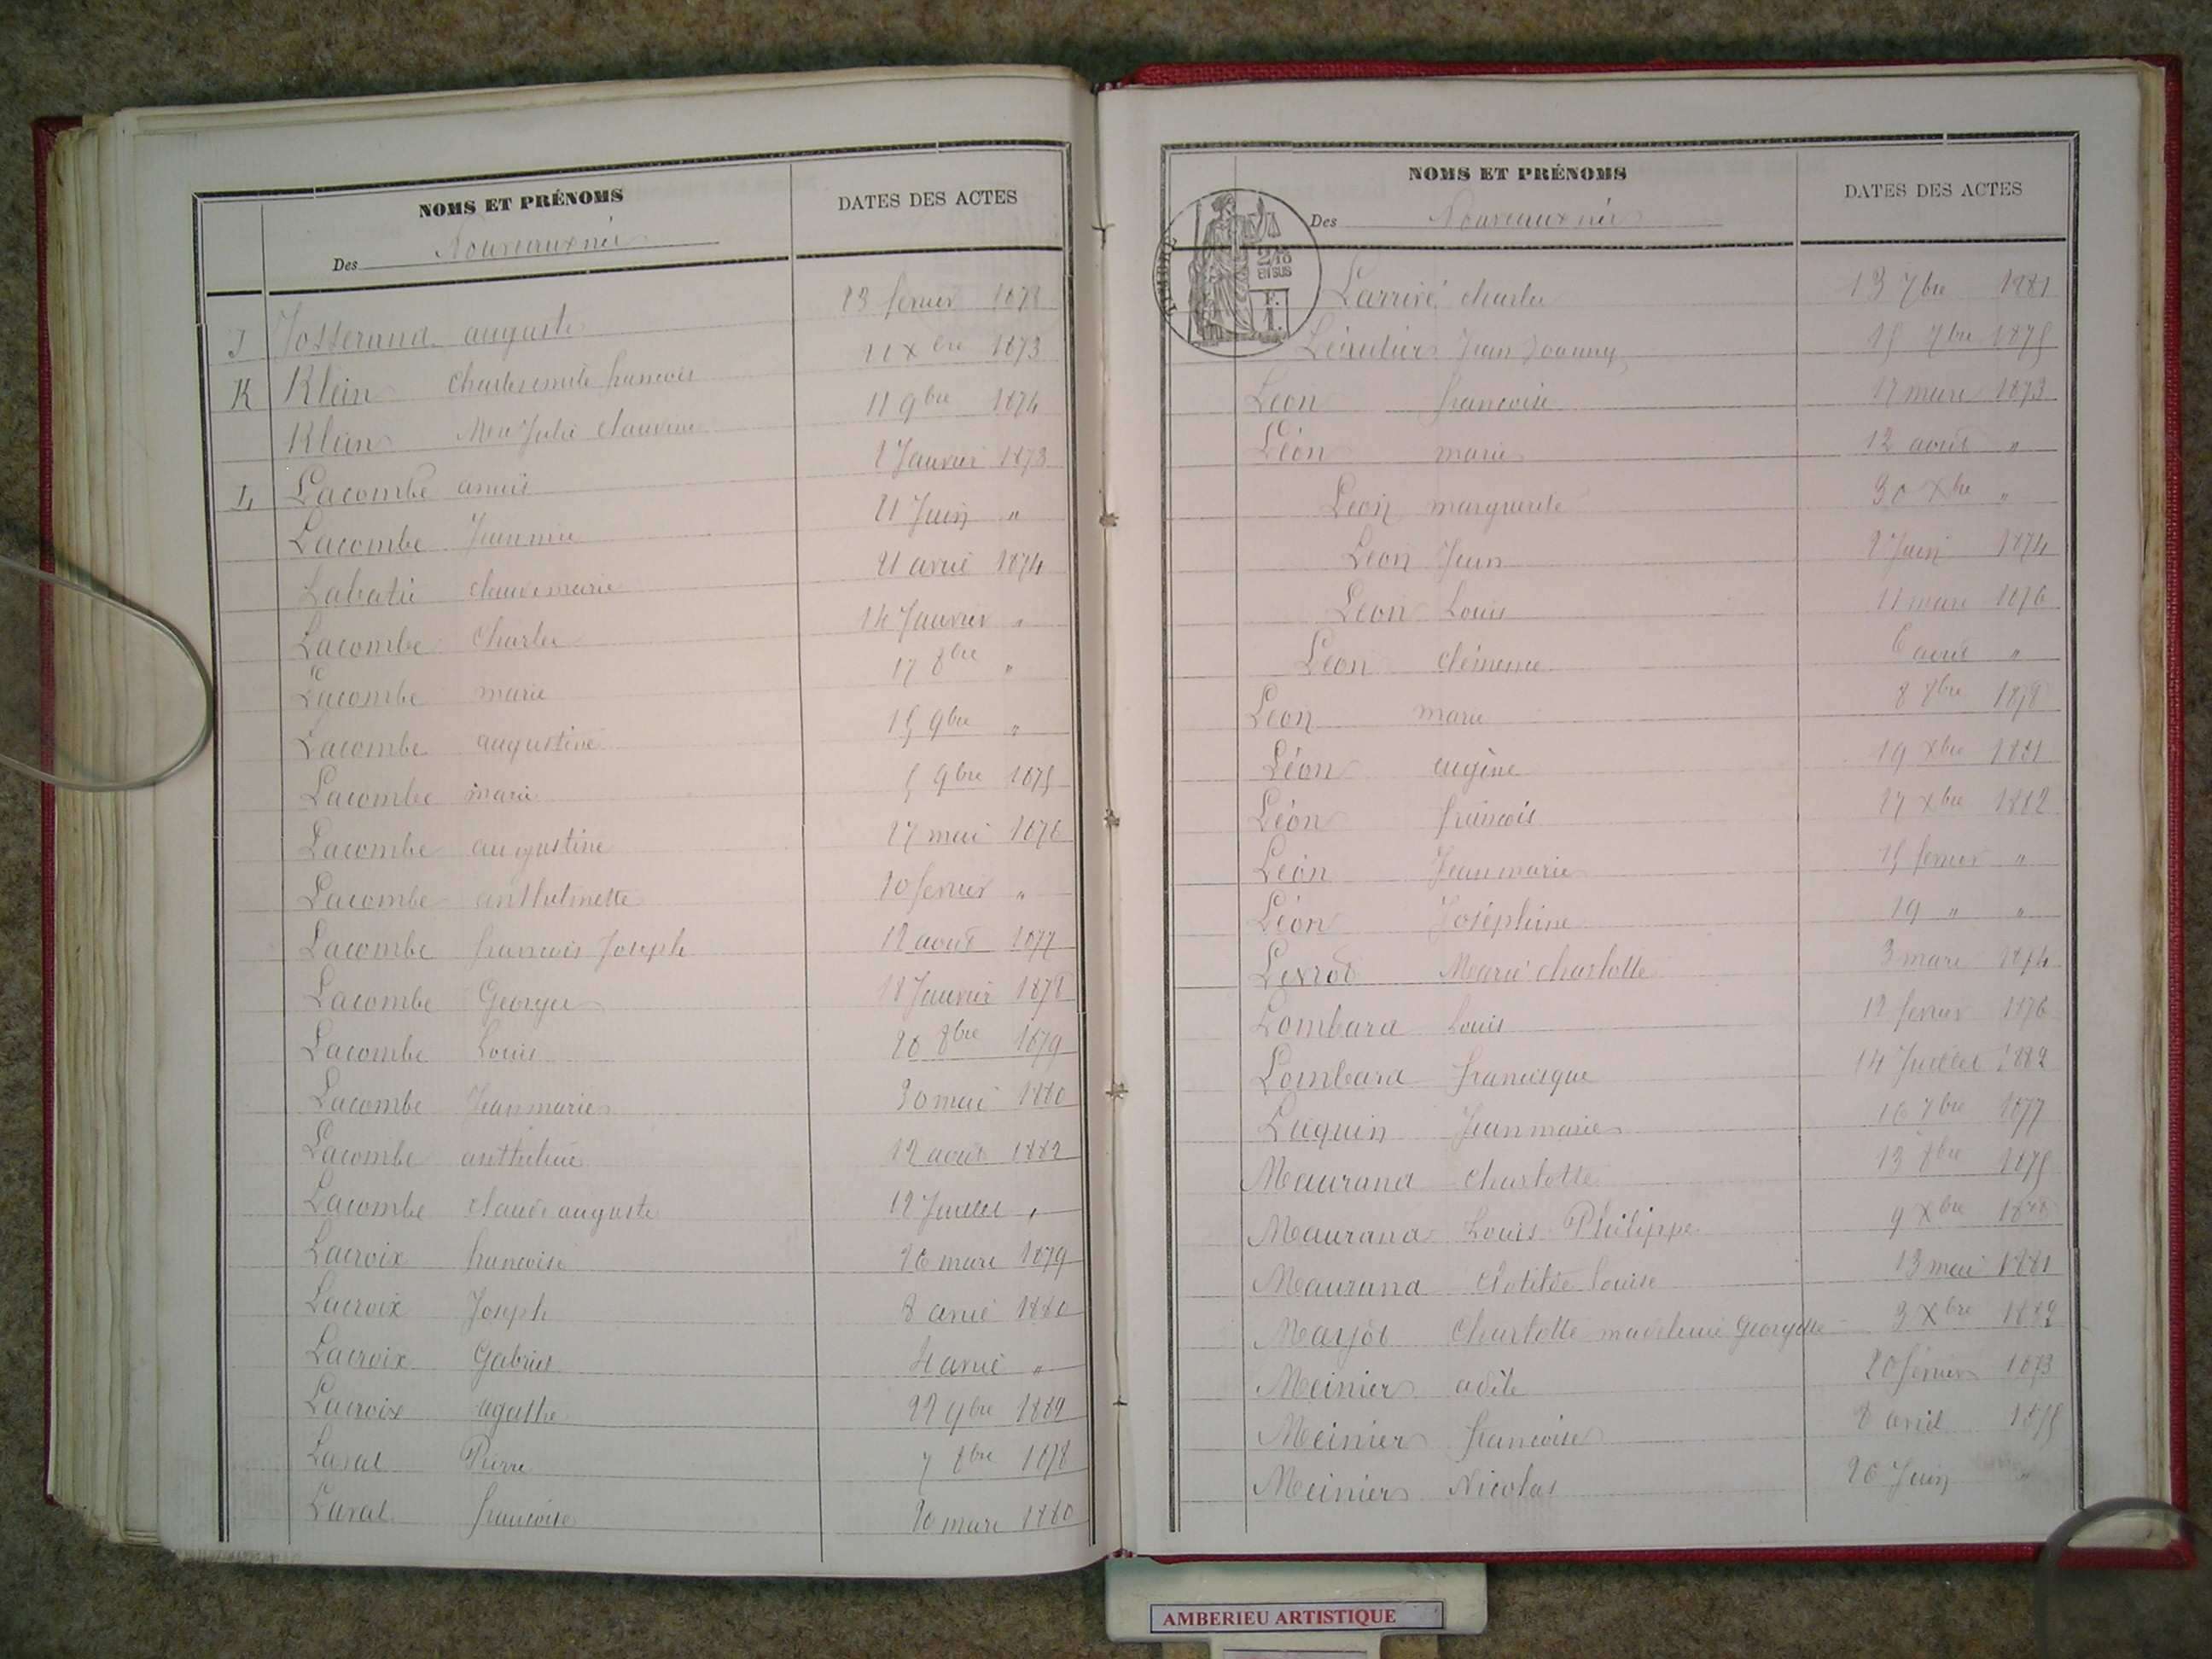 NOMS ET PRÉNOMS
DATES DES ACTES
Des Nouveaux nés
J Josserand auguste 23 fevrier 1878
K Klein Charles emile francois 11 xbre 1873
Klein Julie Claudine 11 9bre 1874
L Lacombe anais 1 Janvier 1873
Lacombe Jeanne 21 Juin "
Labatie claude marie 21 avril 1874
Lacombe Charles 14 Janvier "
Lacombe marie 17 8bre "
Lacombe augustine 15 9bre "
Lacombe marie 5 9bre 1875
Lacombe augustine 27 mai 1876
Lacombe anthelmette 10 fevrier "
Lacombe francois Joseph 12 aout 1877
Lacombe Georges 18 Janvier 1878
Lacombe Louis 20 8bre 1879
Lacombe Jean marie 30 mai 1880
Lacombe anthelme 12 aout 1882
Lacombe claude auguste 12 Juillet "
Lacroix francoise 26 mars 1879
Lacroix Joseph 8 avril 1880
Lacroix Gabriel 4 avril "
Lacroix agathe 22 9bre 1882
Laval Pierre 7 8bre 1878
Laval francoise 20 mars 1880
NOMS ET PRÉNOMS
DATES DES ACTES
Des Nouveaux nés
TIMBRE
2/10
EN SUS
F.
1.
Larrivé charles 13 7bre 1881
Jean Joanny 15 7bre 1875
Leon francoise 17 mars 1873
Léon marie 12 aout "
Leon marguerite 30 Xbre "
Leon Jean 2 Juin 1874
Leon Louis 11 mars 1876
Leon clémence 6 avril "
Leon marie 8 8bre 1878
Léon eugène 19 xbre 1881
Léon francois 27 xbre 1882
Léon Jean marie 15 fevrier "
Léon Joséphine 19 " "
Levrot Marie charlotte 3 mars 1874
Lombard Louis 12 fevrier 1876
Lombard francisque 14 Juillet 1882
Luquin Jean marie 16 7bre 1877
Maurand Charlotte 13 8bre 1875
Maurand Louis Philippe 9 Xbre
Maurand Clotilde Louise 13 mai 1881
Marjot Charlotte madeleine Georgette 3 Xbre 1882
Meinier adèle 20 février 1873
Meinier francoise 8 avril 1875
Meinier Nicolas 26 Juin "
AMBERIEU ARTISTIQUE